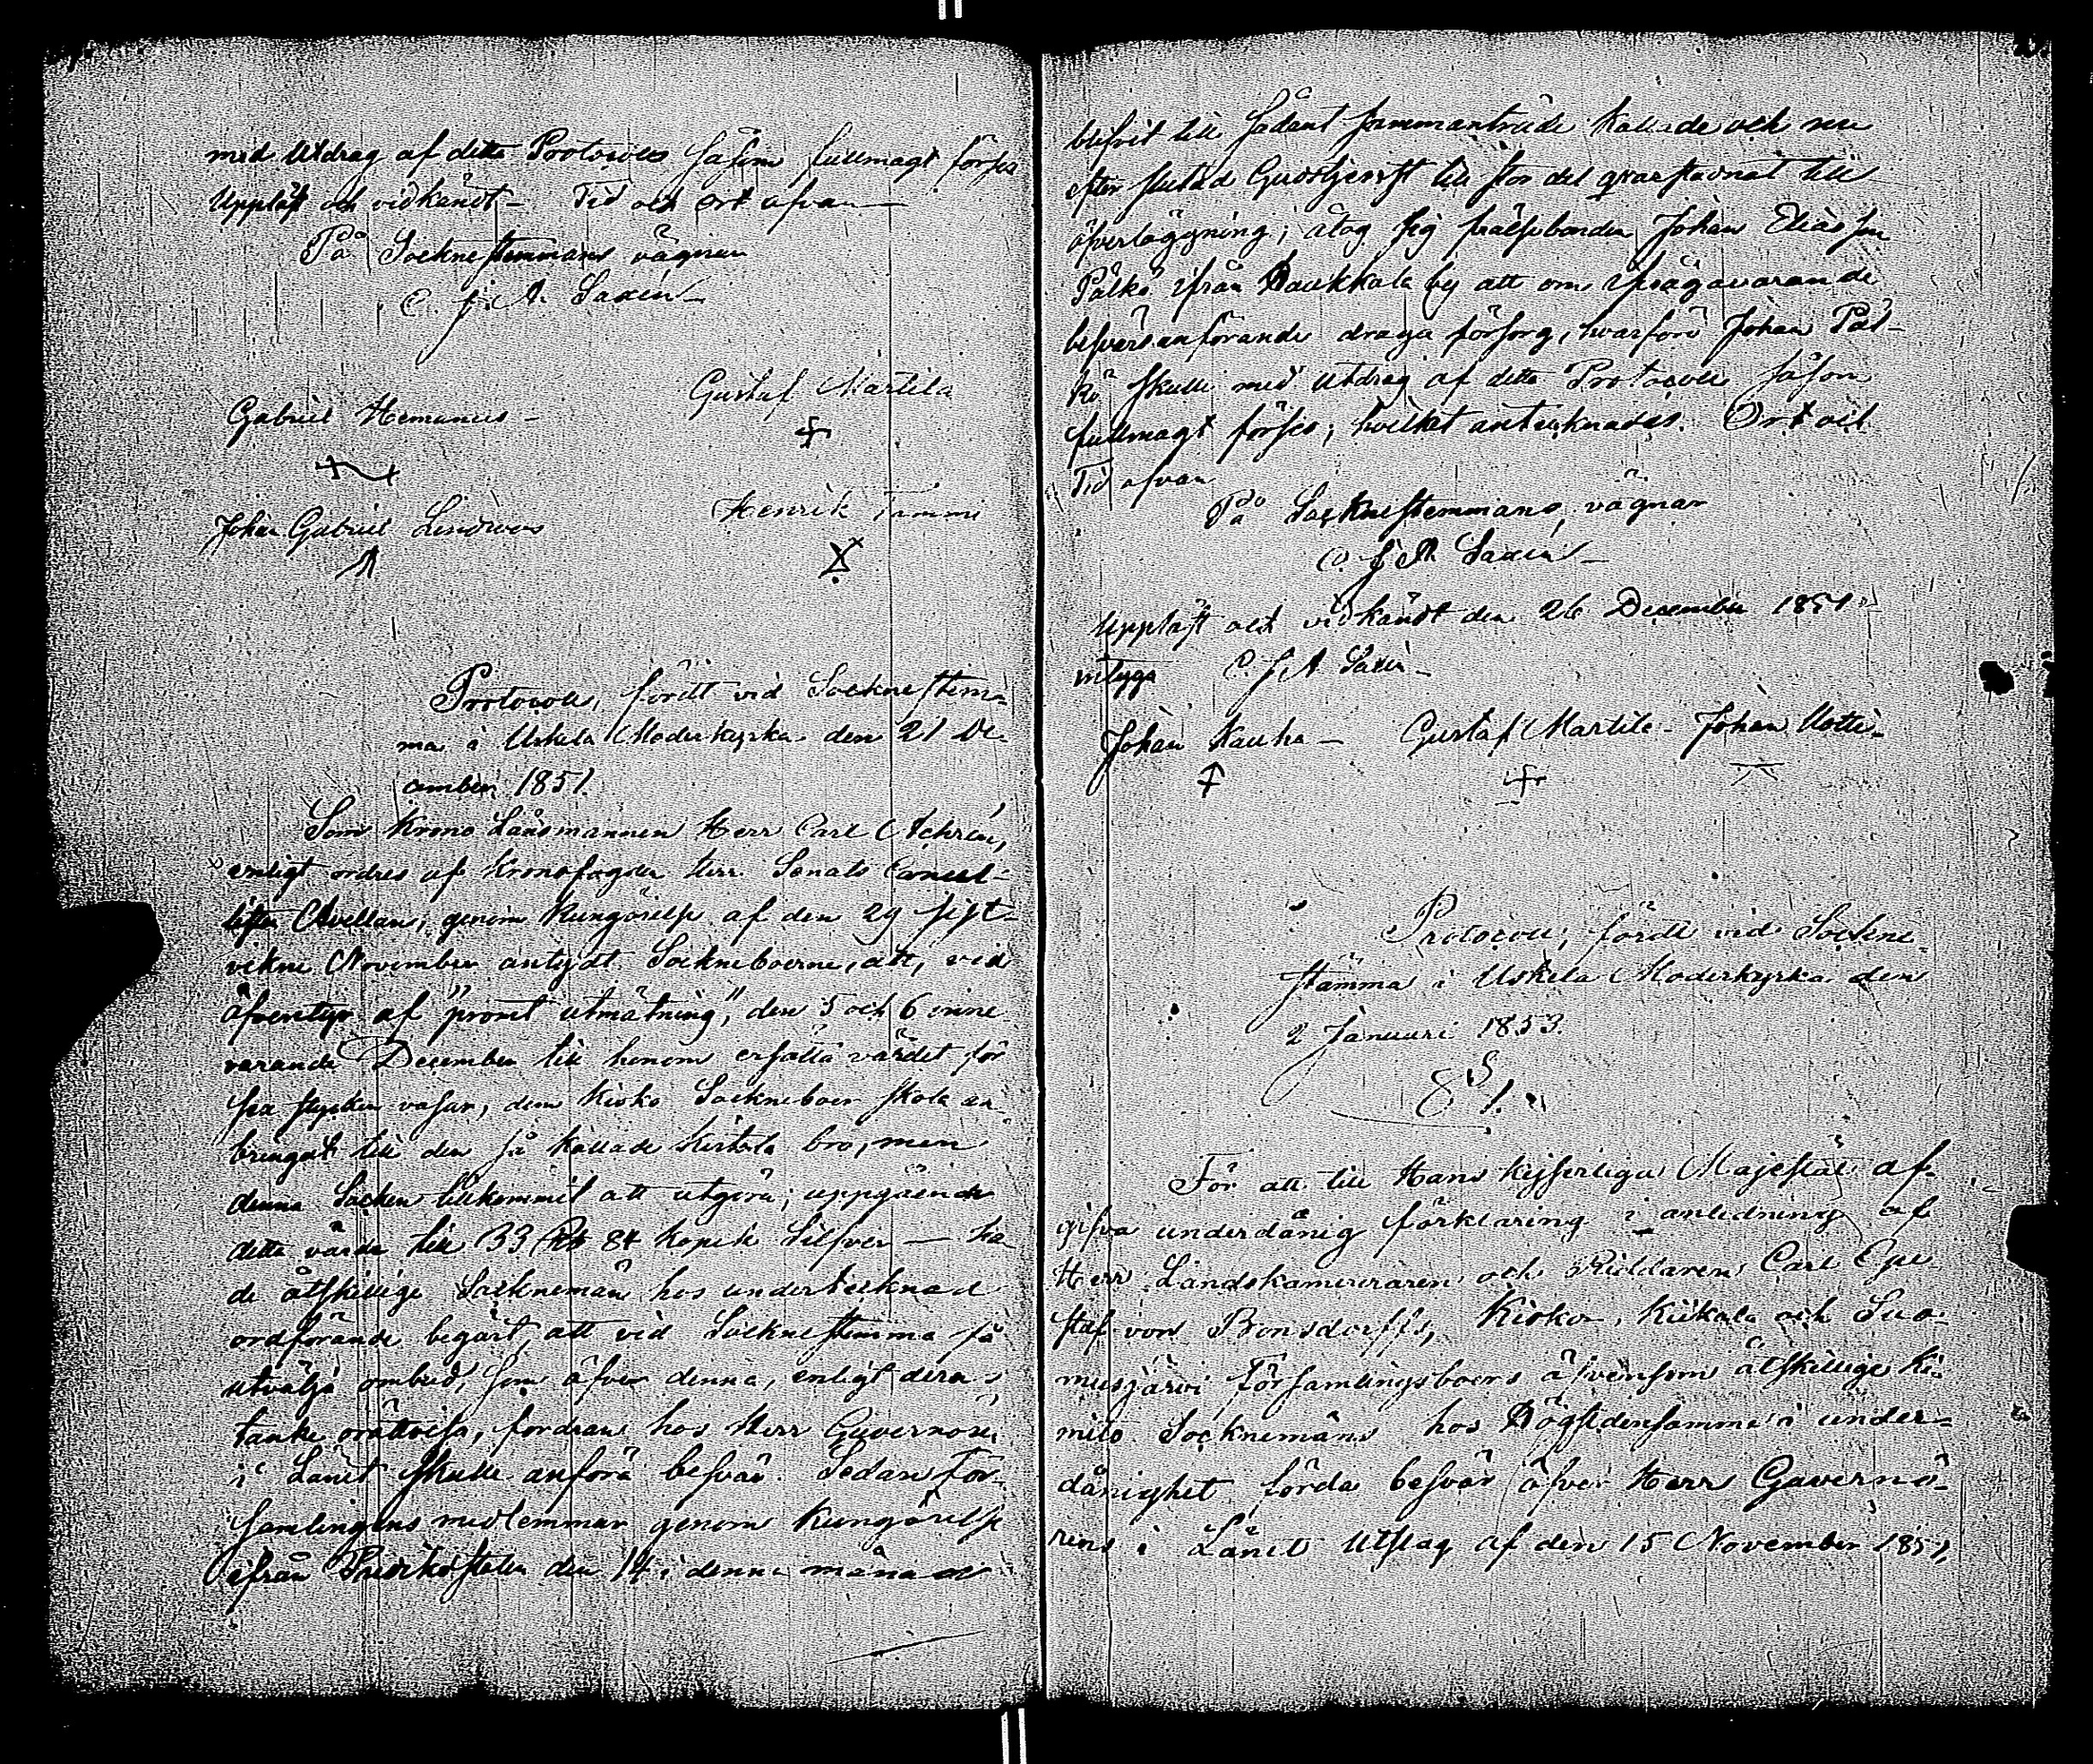 med Utdrag af detta Protocoll såsom fullmagt förses
Uppläst och vidkändt – Tid och ort ofvan –
På Sockneskemmans vägnar
C. J. A. Saxén –
Gabriel Hemanus –
Gustaf Martila
Johan Gabriel Lindroos
Henrik Tammi
Protocoll, fördt vid Socknestem-
ma i Uskela Moderkyrka den 21 De-
cember 1851.
Som Krono Länsmannen Herr Carl Achrén,
enligt ordres af Kronofogden Herr Senats Cancel-
listen Avellan, genom Kungörelse af den 29 sist-
vekne November antydt Sockneboerne, att, vid
äfventyr af "promt utmätning", den 5 och 6 inne
varande December till honom erlägga värdet för
sex stycken vasar, dem Kisko Sockneboer skola an-
bringat till den så kallade bro, men
denna Socken tillkommit att utgöra, uppgående
detta värde till 33 Rb 84 kopek Silfver – ha-
de åtskillige Socknemän hos undertecknad
ordförande begärt, att vid Socknestemma få
utvälja ombud, som öfver denna, enligt deras
tanke orättvisa, fordran hos Herr Guvernören
i Länet skulle anföra besvär. Sedan För-
samlingens medlemmar genom Kungörelse
ifrån Predikostolen den 14 i denna månad
blifvit till sådant sammanträde kallade och nu
efter slutad Gudstjenst till stor del qvarstadnat till
öfverläggning, åtog sig frälsebonden Johan Eliasson
Pälkö ifrån Kaukkala by att om ifrågavarande
besvärsanförande draga försorg, hvarföre Johan Päl-
kö skulle med utdrag af detta Protocoll såsom
fullmagt förses; hvilket antecknades. Ort och
Tid ofvan
På Socknestemmans vägnar
C. J. A. Saxén –
Uppläst och vidkändt den 26 December 1851
intyga C. J. A. Saxén –
Johan Kauha – Gustaf Martila – Johan Uotti –
Protocoll, fördt vid Sockne-
stämma i Uskela Moderkyrka den
2 Januari 1853.
§ 1.
För att till Hans Kejserliga Majestät af-
gifva underdånig förklaring i anledning af
Herr Landskamereraren och Riddaren Carl Gu-
staf von Bonsdorffs, Kisko, Kiikala och Suo-
musjärvi Församlingsboers äfvensom åtskillige Ki-
mito Socknemäns hos Högstdensamme i under-
dånighet förda besvär öfver Herr Guvernö-
rens i Länet Utslag af den 15 November 1851,